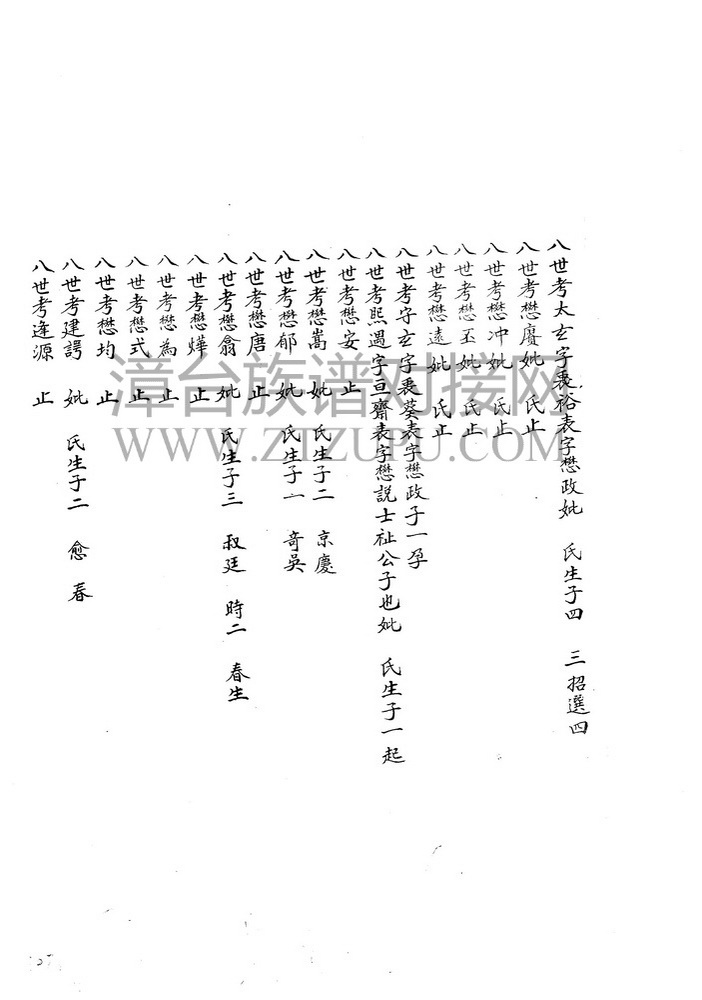 八世考太玄字裹裕表字懋政妣 氏生子四 三招選四
八世考懋慶妣 氏止
八世考懋冲妣 氏止
八世考懋丕妣 氏止
八世考懋遠妣 氏止
八世考守玄字裹葵表字懋政子一孕
八世考熙過字亘齋表字懋説士祉公子也妣 氏生子一起
八世考懋安 止
八世考懋嵩 妣 氏生子二 京慶
八世考懋郁 妣 氏生子一 奇吳
八世考懋唐 止
八世考懋翕 妣 氏生子三 叔廷 時二 春生
八世考懋燁 止
八世考懋為 止
八世考懋式 止
八世考懋均 止
八世考建諤 妣 氏生子二 愈春
八世考逢源 止
漳台族谱对接网
WWW.ZTZUPU.COM